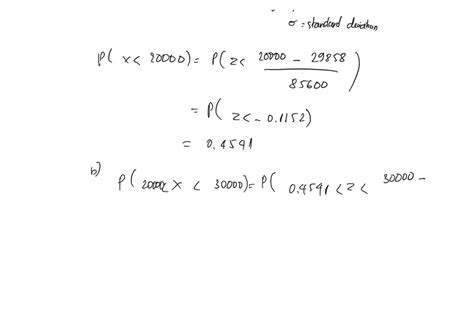 σ = standard deviation
P( x < 20000) = P( z < 20000 - 29858
85600 )
= P( z < - 0.1152)
= 0.4591
b) P( 20000< X < 30000) = P( 0.4591 < z < 30000 -